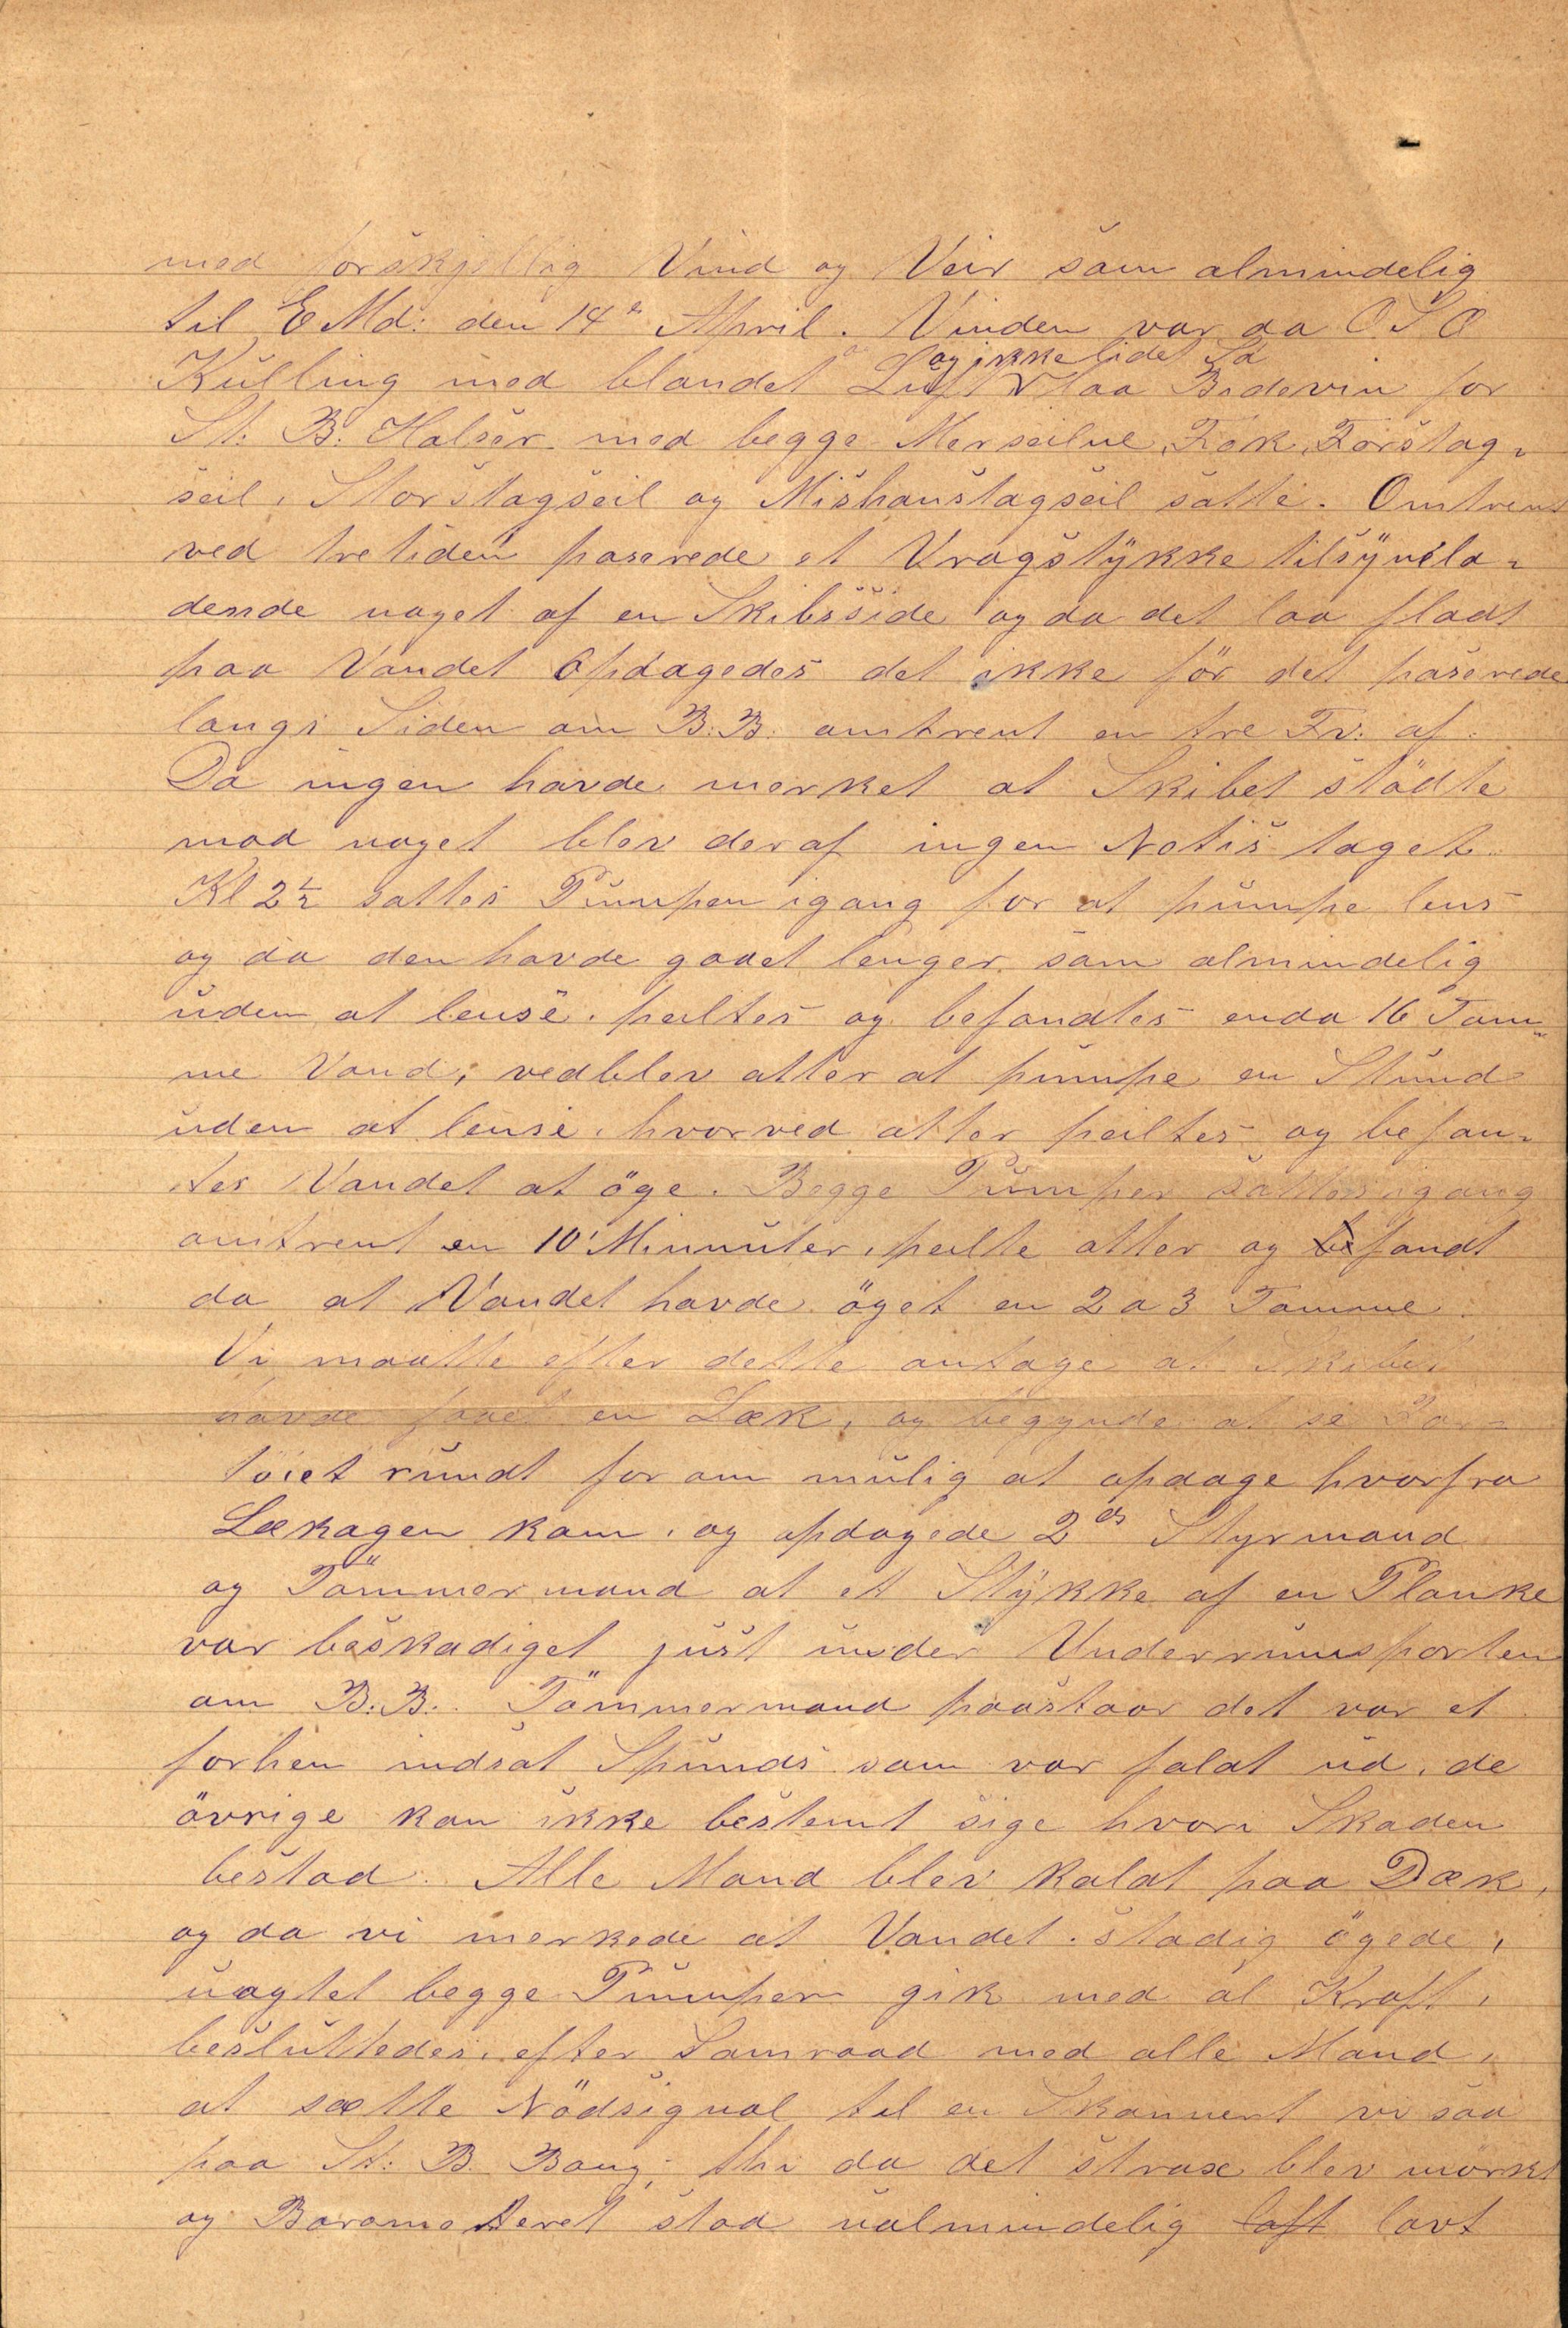 med forskjellig Vind og Veir som almindelig
til E Md: den 14de April. Vinden var da OSO
og ikke lidet Sø
Kulling med blandet Luft V laa Bidevin for
St: B: Halser med begge Merseilne, Fok, Forstag-
seil, Storstagseil og Mishanstagseil satte. Omtrent
ved tretiden paserede et Vragstykke tilsynela-
dende noget af en Skibsside og da det laa fladt
paa Vandet opdagedes det ikke för det paserede
langs Siden om B:B: omtrent en tre Fv: af.
Da ingen havde merket at Skibet stödte
mod noget blev deraf ingen Notis taget.
Kl 2½ sattes Pumpen igang for at pumpe lens
og da den havde gaaet lenger som almindelig
uden at lense, peiltes og befandtes enda 16 Tom-
me Vand, vedblev atter at pumpe en Stund
uden at lense, hvorved atter peiltes og befan-
tes Vandet at öge. Begge Pumper sattes igang
omtrent en 10 Minnuter, peilte atter og be fandt
da at Vandet havde öget en 2 a 3 Tomme.
Vi maatte efter dette antage at Skibet
havde faaet en Læk, og begynde at se Far-
töiet rundt for om mulig at opdage hvorfra
Lækagen kom, og opdagede 2den Styrmand
og Tömmermand at et Stykke af en Planke
var beskadiget just under Underrumsporten
om B:B:. Tömmermand paastaar det var et
forhen indsat Spunds som var faldt ud, de
övrige kan ikke bestemt sige hvori Skaden
bestod. Alle Mand blev kaldt paa Dæk,
og da vi merkede at Vandet stadig ögede,
uagtet begge Pumper gik med al Kraft,
besluttedes, efter Samraad med alle Mand,
at sætte Nödsignal til en Skonnert vi saa
paa St: B. Boug, thi da det strax blev mörkt
og Barometeret stod ualmindelig laft lavt